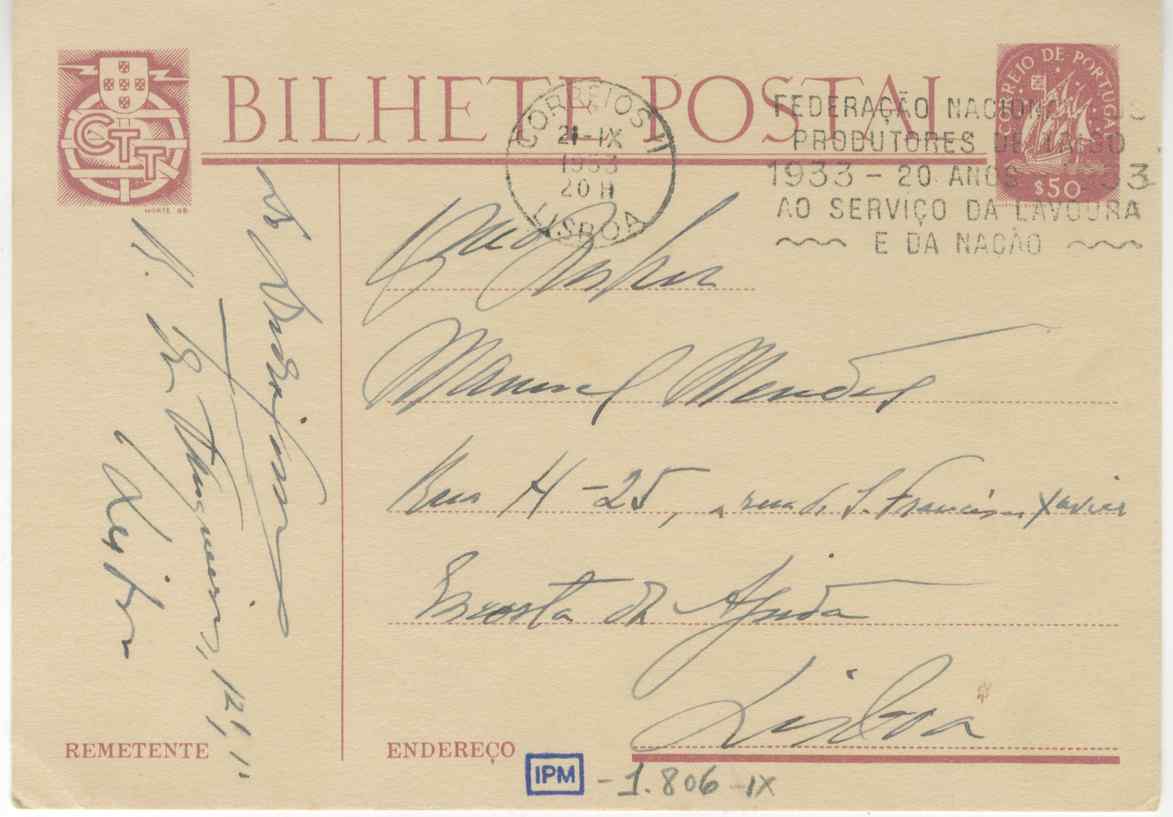 BILHETE POSTAL
CTT
CORREIO DE PORTUGAL
$50
CORREIOS
21-IX
1953
20 H
LISBOA
FEDERAÇÃO NACIONAL DOS
PRODUTORES DE TRIGO
1933 - 20 ANOS - 1953
AO SERVIÇO DA LAVOURA
E DA NAÇÃO
Manuel Mendes
Rua H - 25, a rua de S. Francisco Xavier
Encosta da Ajuda
Lisboa
12, 1º
Lisboa
REMETENTE
ENDEREÇO
IPM - 1.806 - IX